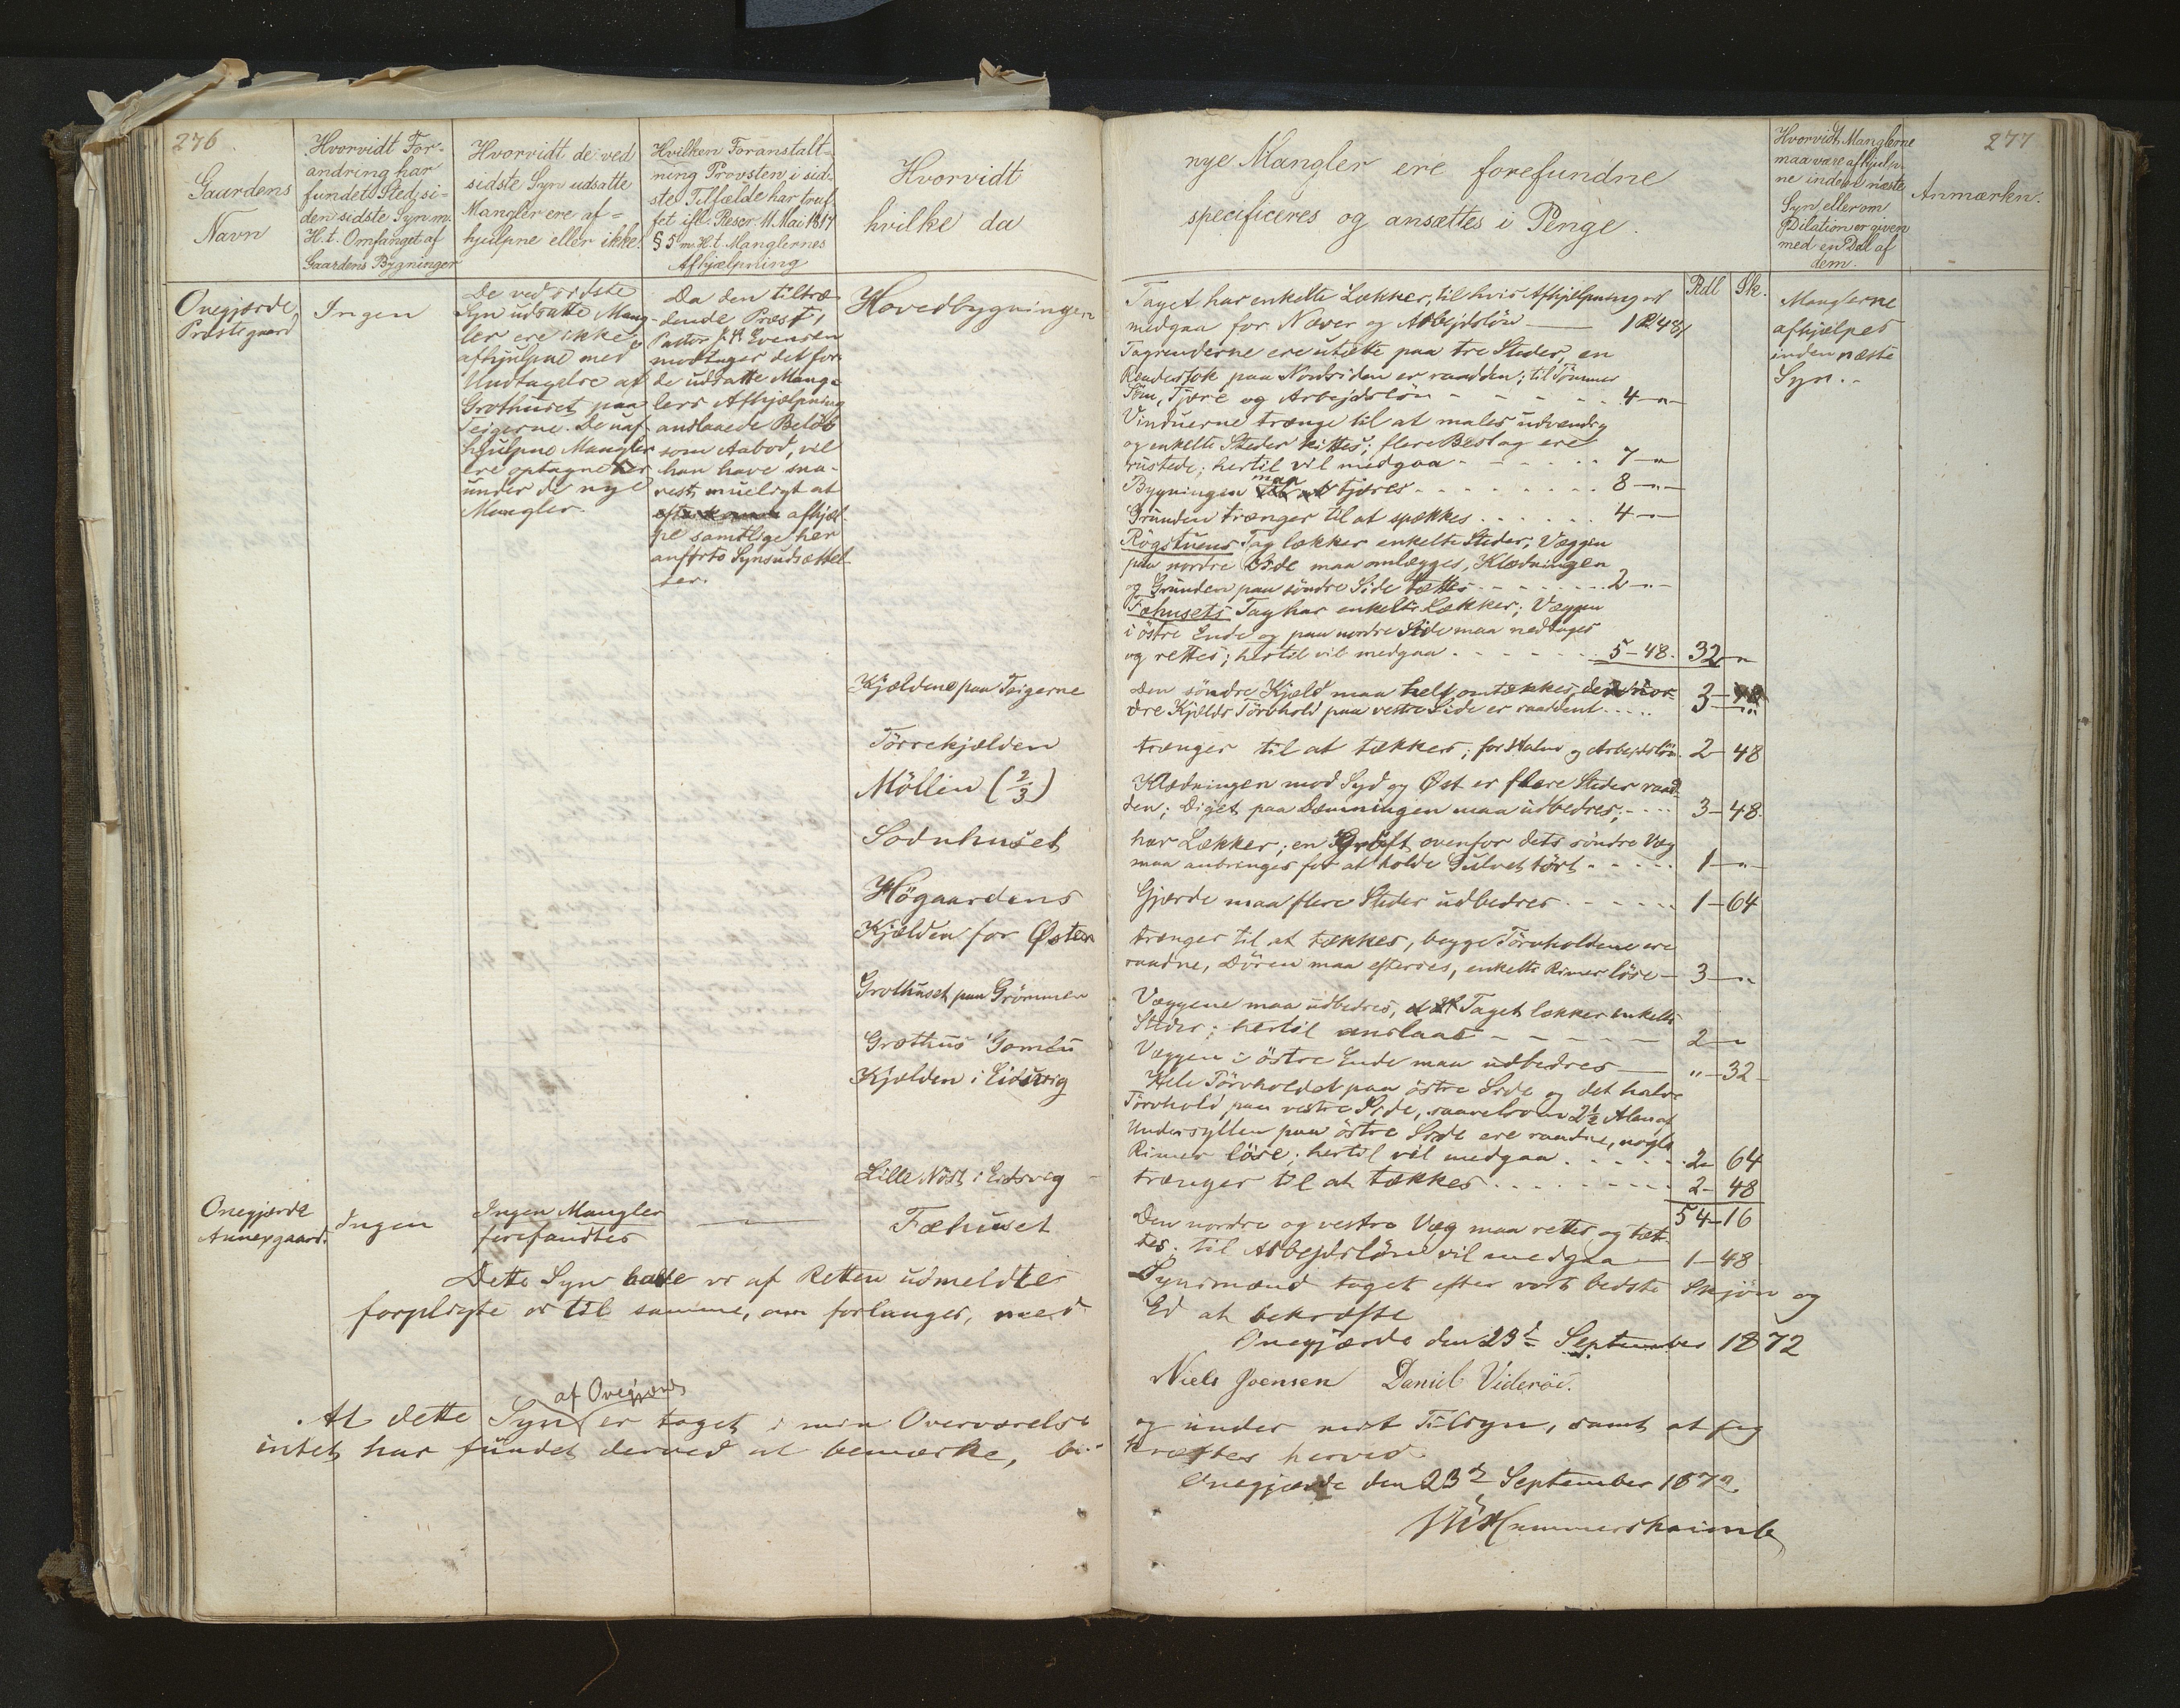 276.
Gaardens
Navn
Hvorvidt For-
andring har
fundet Sted si-
den sidste Syn m.
H. t. Omfanget af
Gaardens Bygninger
Hvorvidt de ved
sidste Syn udsatte
Mangler ere af-
hjulpne eller ikke.
Hvilken Foranstalt-
ning Provsten i sid-
ste Tilfælde har truf-
fet ifl. Reser. 11. Mai 1817
§ 5 m. H. t. Manglernes
Afhjælpning
Hvorvidt
hvilke da
Onegjærde,
Præstegaard
Ingen
De ved sidste
Syn udsatte Mang-
ler ere ikke
afhjulpne med
Undtagelse af
Grothuset paa
Teigerne. De uaf-
hjulpne Mangler
ere optagne her
under de nye
Mangler.
Da den tiltræ-
dende Præst,
Pastor J. A. Evensen
modtager det for
de udsatte Mang-
lers Afhjælpning
anslaaede Beløb
som Aabod, vil
han have sna-
rest mueligt at
afhjæl-
pe samtlige her
anførte Synsudsættel-
ser.
Hovedbygningen
Kjældene paa Teigerne
Törrekjælden
Möllen (2/3)
Sodnhuset
Högaardens
Kjælden for Østen
Grothuset paa Grömmen
Grothus Gomlu
Kjælden i Eidsvig
Lille Nöst i Eidsvig
Onegjærde
Annexgaard.
Ingen
Ingen Mangler
forefandtes
Fæhuset
Dette Syn have vi af Retten udmeldte
forpligte os til samme, om forlanges, med
af Onegjærde
At dette Syn er taget i min Overværelse
intet har fundet derved at bemærke, be-
277
nye Mangler ere forefundne
specificeres og ansættes i Penge.
Hvorvidt Manglerne
maa være afhjulp-
ne inden næste
Syn eller om
Dilation er given
med en Deel af
dem.
Anmærkn.
Rdl Sk.
Taget har enkelte Lækker, til hvis Afhjælpning vil
medgaa for Næver og Arbejdslön — 1 R 48 ſ
Tagrenderne ere utætte paa tre Steder, en
Renderstok paa Nordsiden er raadden; til Tömmer
Söm, Tjære og Arbejdslön - - - - - 4 — "
Vinduerne trænge til at males udvendig
og enkelte Steder kittes; flere Beslag ere
rustede; hertil vil medgaa - - - - - 7 — "
Bygningen maa tjæres - - - - - 8 — "
Grunden trænger til at spækkes - - - - - 4 — "
Rögstuens Tag lækker enkelte Steder, Væggen
paa nordre Side maa omlægges, Klædningen
og Grunden paa söndre Side tættes - - - - - 2 — "
Fæhusets Tag har enkelte Lækker; Væggen
i östre Ende og paa nordre Side maa nedtages
og rettes; hertil vil medgaa - - - - - 5 - 48. 32 — "
Den söndre Kjæld maa helt omtækkes, den nor-
dre Kjælds Törvhold paa vestre Side er raaddent - - - - 3 — "
trænger til at tækkes; for Halm og Arbejdslön. 2 - 48
Klædningen mod Syd og Øst er flere Steder raad-
den; Diget paa Dæmningen maa udbedres; - - - - 3 - 48.
har Lækker; en Gröft ovenfor dets söndre Væg
maa anbringes for at holde Gulvet tört - - - - - 1 — "
Gjærde maa flere Steder udbedres - - - - - 1 - 64
trænger til at tækkes, begge Törvholdene ere
raadne, Dören maa efterses, enkelte Rimer löse - 3 — "
Væggene maa udbedres, Taget lækker enkelte
Steder; hertil anslaaes - - - - - 2 — "
Væggen i östre Ende maa udbedres — " - 32 -
Hele Törvholdet paa östre Side og det halve
Törvhold paa vestre Side, saavelsom 2 1/2 Alen af
Undersyllen paa östre Side ere raadne, nogle
Rimer löse; hertil vil medgaa - - - - - 2 - 64
trænger til at tækkes - - - - - 2 - 48
54 - 16
Den nordre og vestre Væg maa rettes og tæt-
tes; til Arbejdslön vil medgaa - 1 - 48
Synsmænd taget efter vort bedste Skjön og
Ed at bekræfte
Onegjærde den 23de September 1872
Niels Joensen Daniel Viderö.
og under mit Tilsyn, samt at jeg
kræftes herved.
Onegjærde den 23de September 1872.
Hammershaimb
Manglerne
afhjælpes
inden næste
Syn. -